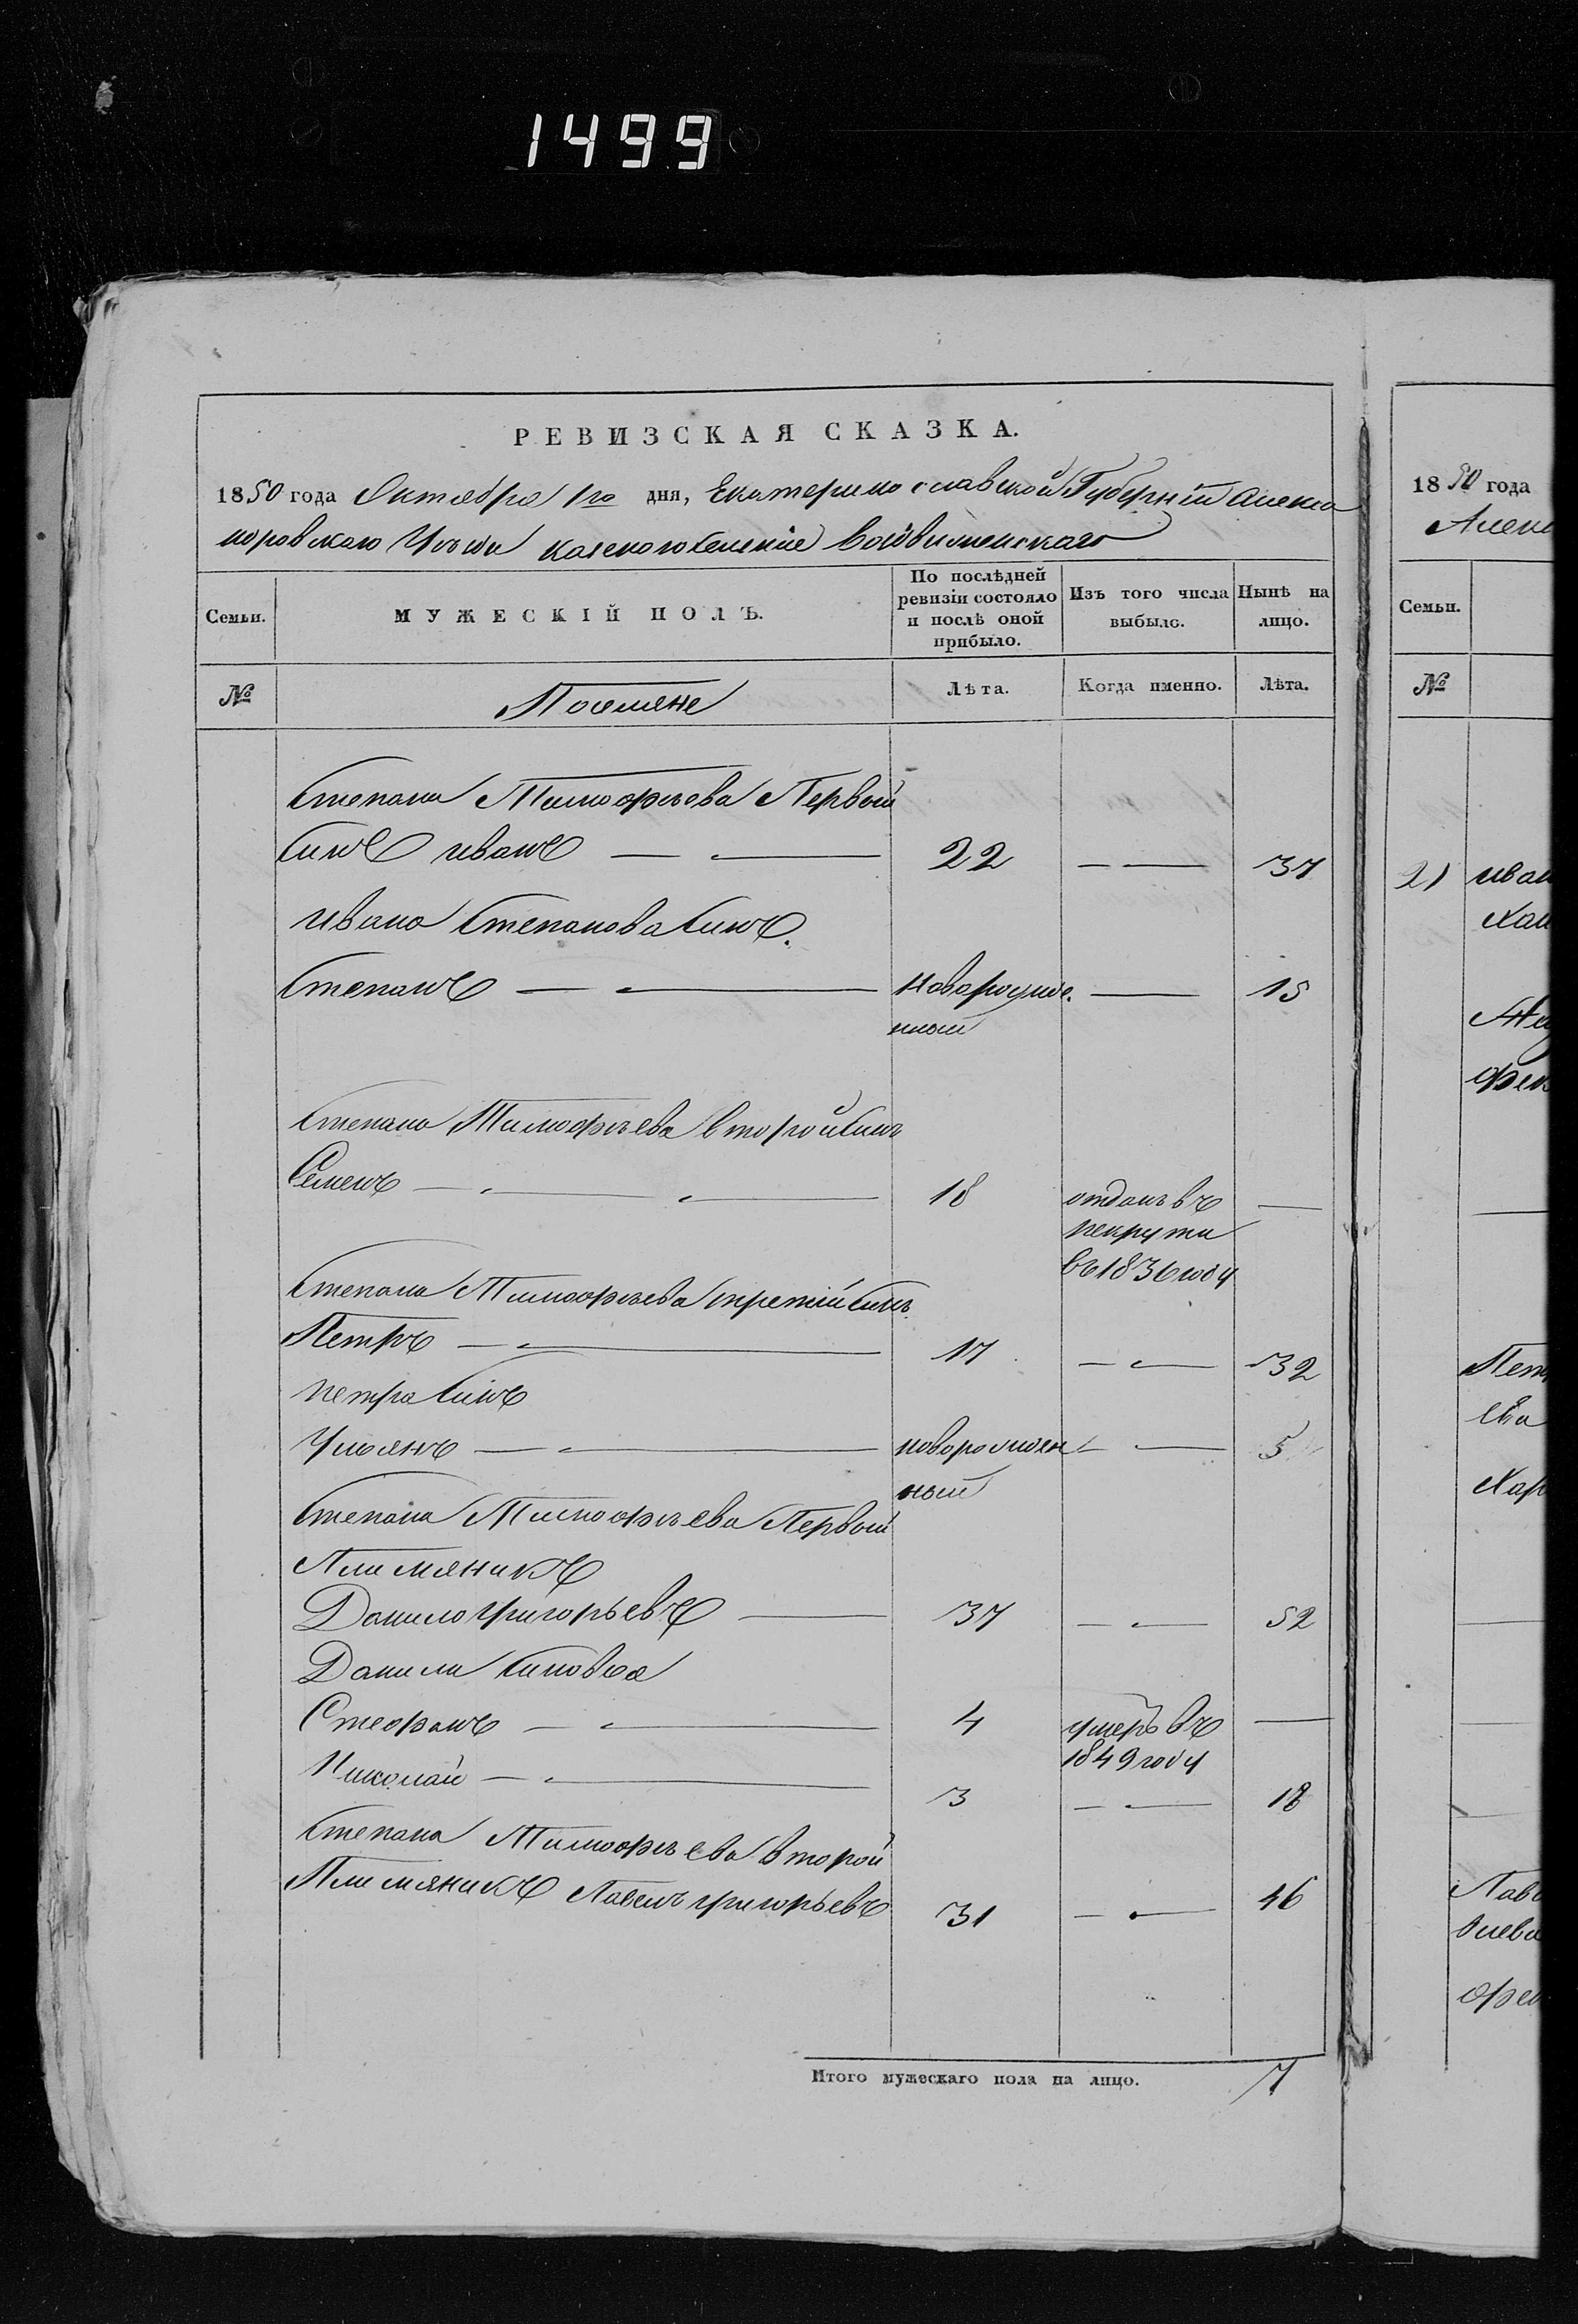 1499
РЕВИЗСКАЯ СКАЗКА.
1850 года Октября 1го дня, Екатеринославской Губерніи Алекса
ндровскаго Уезда Воздвиженскаго
Семьи.
МУЖЕСКІЙ ПОЛЪ.
По послѣдней ревизіи состояло и послѣ оной прибыло.
Изъ того числа выбыло.
Нынѣ на лицо.
№
Поселяне
Лѣта.
Когда именно.
Лѣта.
Степана Тимофѣева Первый
Синъ иванъ — — 22 — — 37
ивана Степанова Синъ.
Степанъ — — новорожде. — 15
нный
Степана Тимофѣева второй Синъ
Семенъ — — — 18 отданъ въ —
рекрути
въ 1836 году
Степана Тимофѣева третій Синъ
Петръ — — 17 — — 32
петра Синъ
Ульянъ — — новорожден — — 5
ный
Степана Тимофѣева Первый
Плимяникъ
Данило григорьевъ — 37 — — 52
Данили Синовья
Стефанъ — — 4 умеръ въ —
1849 году
Николай — — 3 — — 18
Степана Тимофѣева второй
Плимяникъ Павелъ григорьевъ 31 — — 46
Итого мужескаго пола на лицо. 7
1850 года
Алекс
Семьи.
№
21 иван
Пет
ева
Хар
Павл